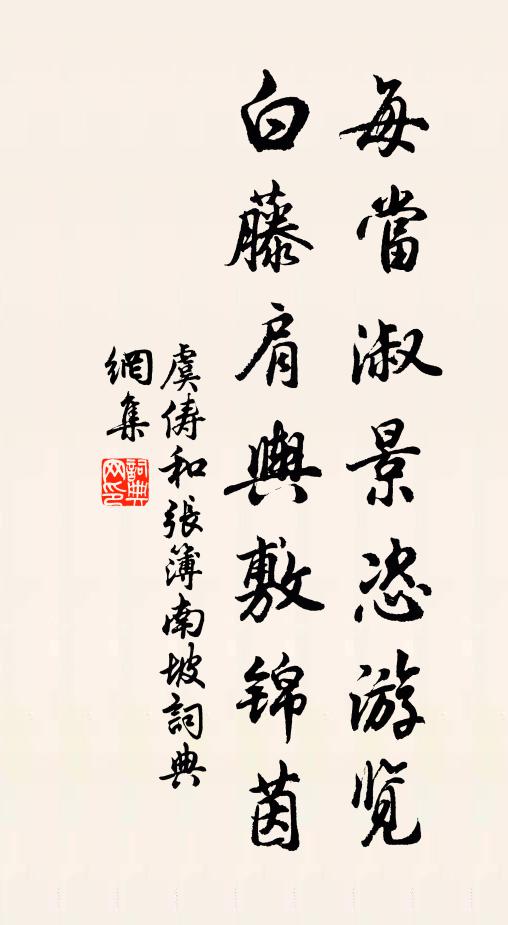 每當淑景恣游覽
白藤肩輿敷錦茵
虞儔和張簿南坡詞典
網集
詞典網印